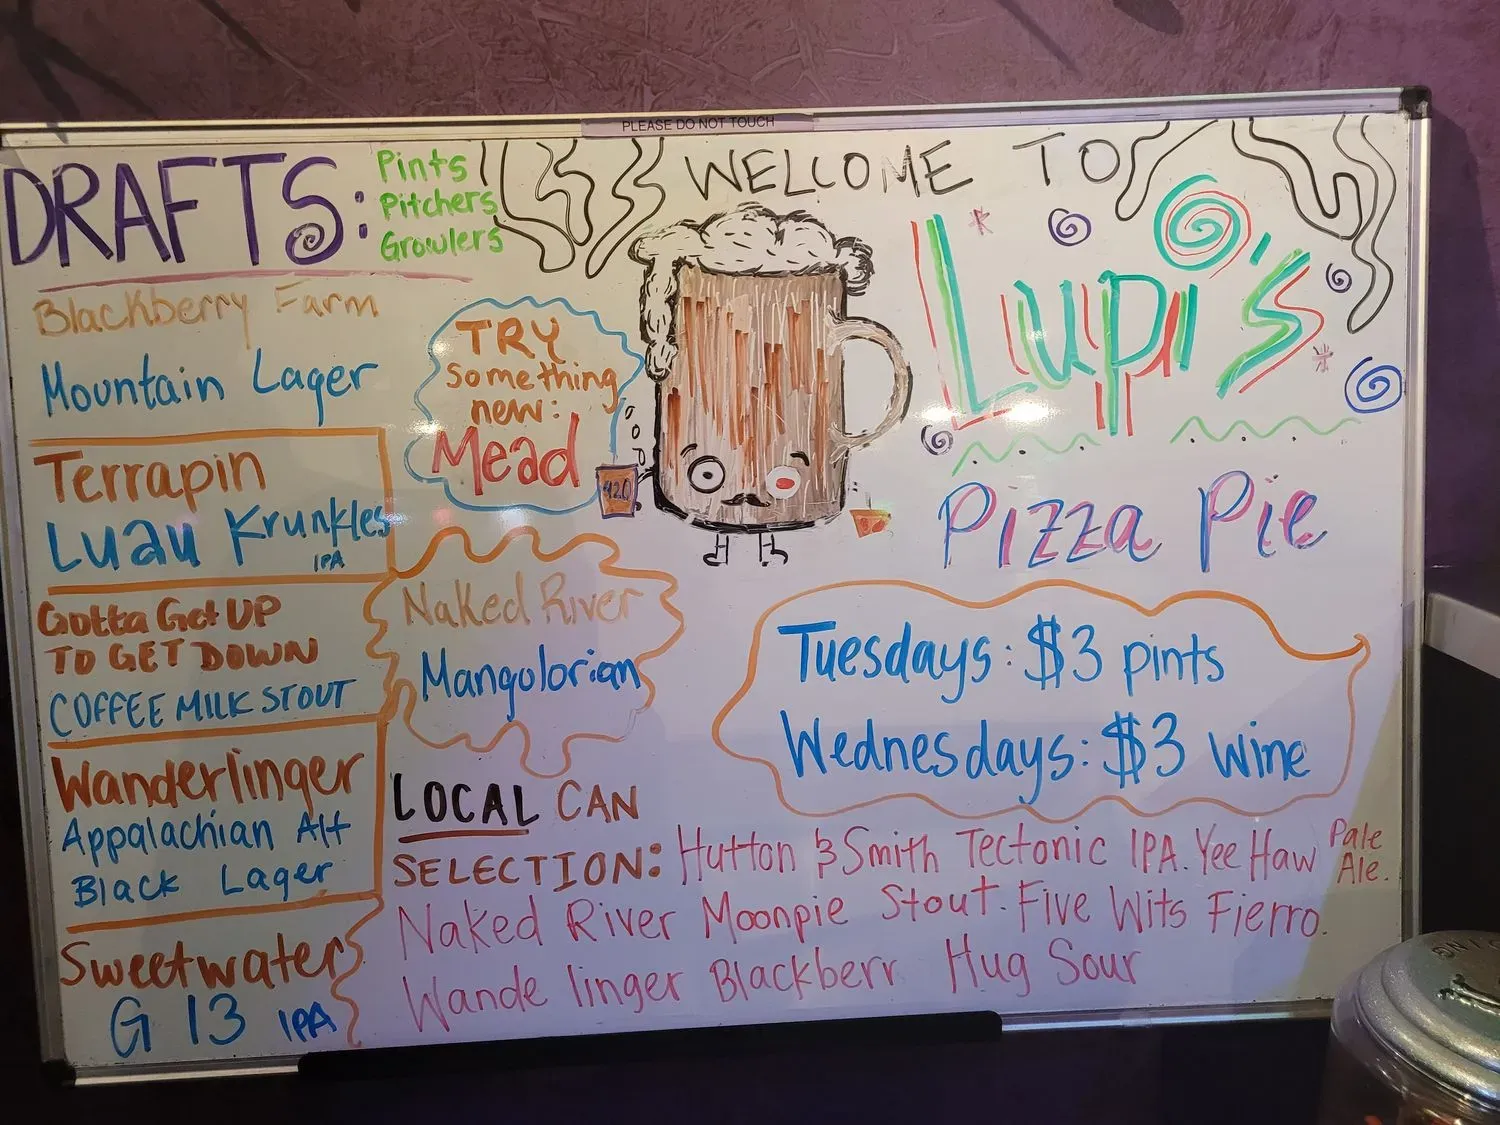 PLEASE DO NOT TOUCH
DRAFTS:
Pints
Pitchers
Growlers
Blackberry Farm
Mountain Lager
Terrapin
Luau Krunkles
IPA
Gotta Get UP
TO GET DOWN
COFFEE MILK STOUT
Wanderlinger
Appalachian Alt
Black Lager
Sweetwater
G 13 IPA
TRY
something
new:
Mead
420
Naked River
Mangolorian
WELCOME TO
Lupi's
Pizza Pie
Tuesdays: $3 pints
Wednesdays: $3 wine
LOCAL CAN
SELECTION: Hutton & Smith Tectonic IPA. Yee Haw Pale
Ale.
Naked River Moonpie Stout. Five Wits Fierro.
Wande linger Blackberr Hug Sour